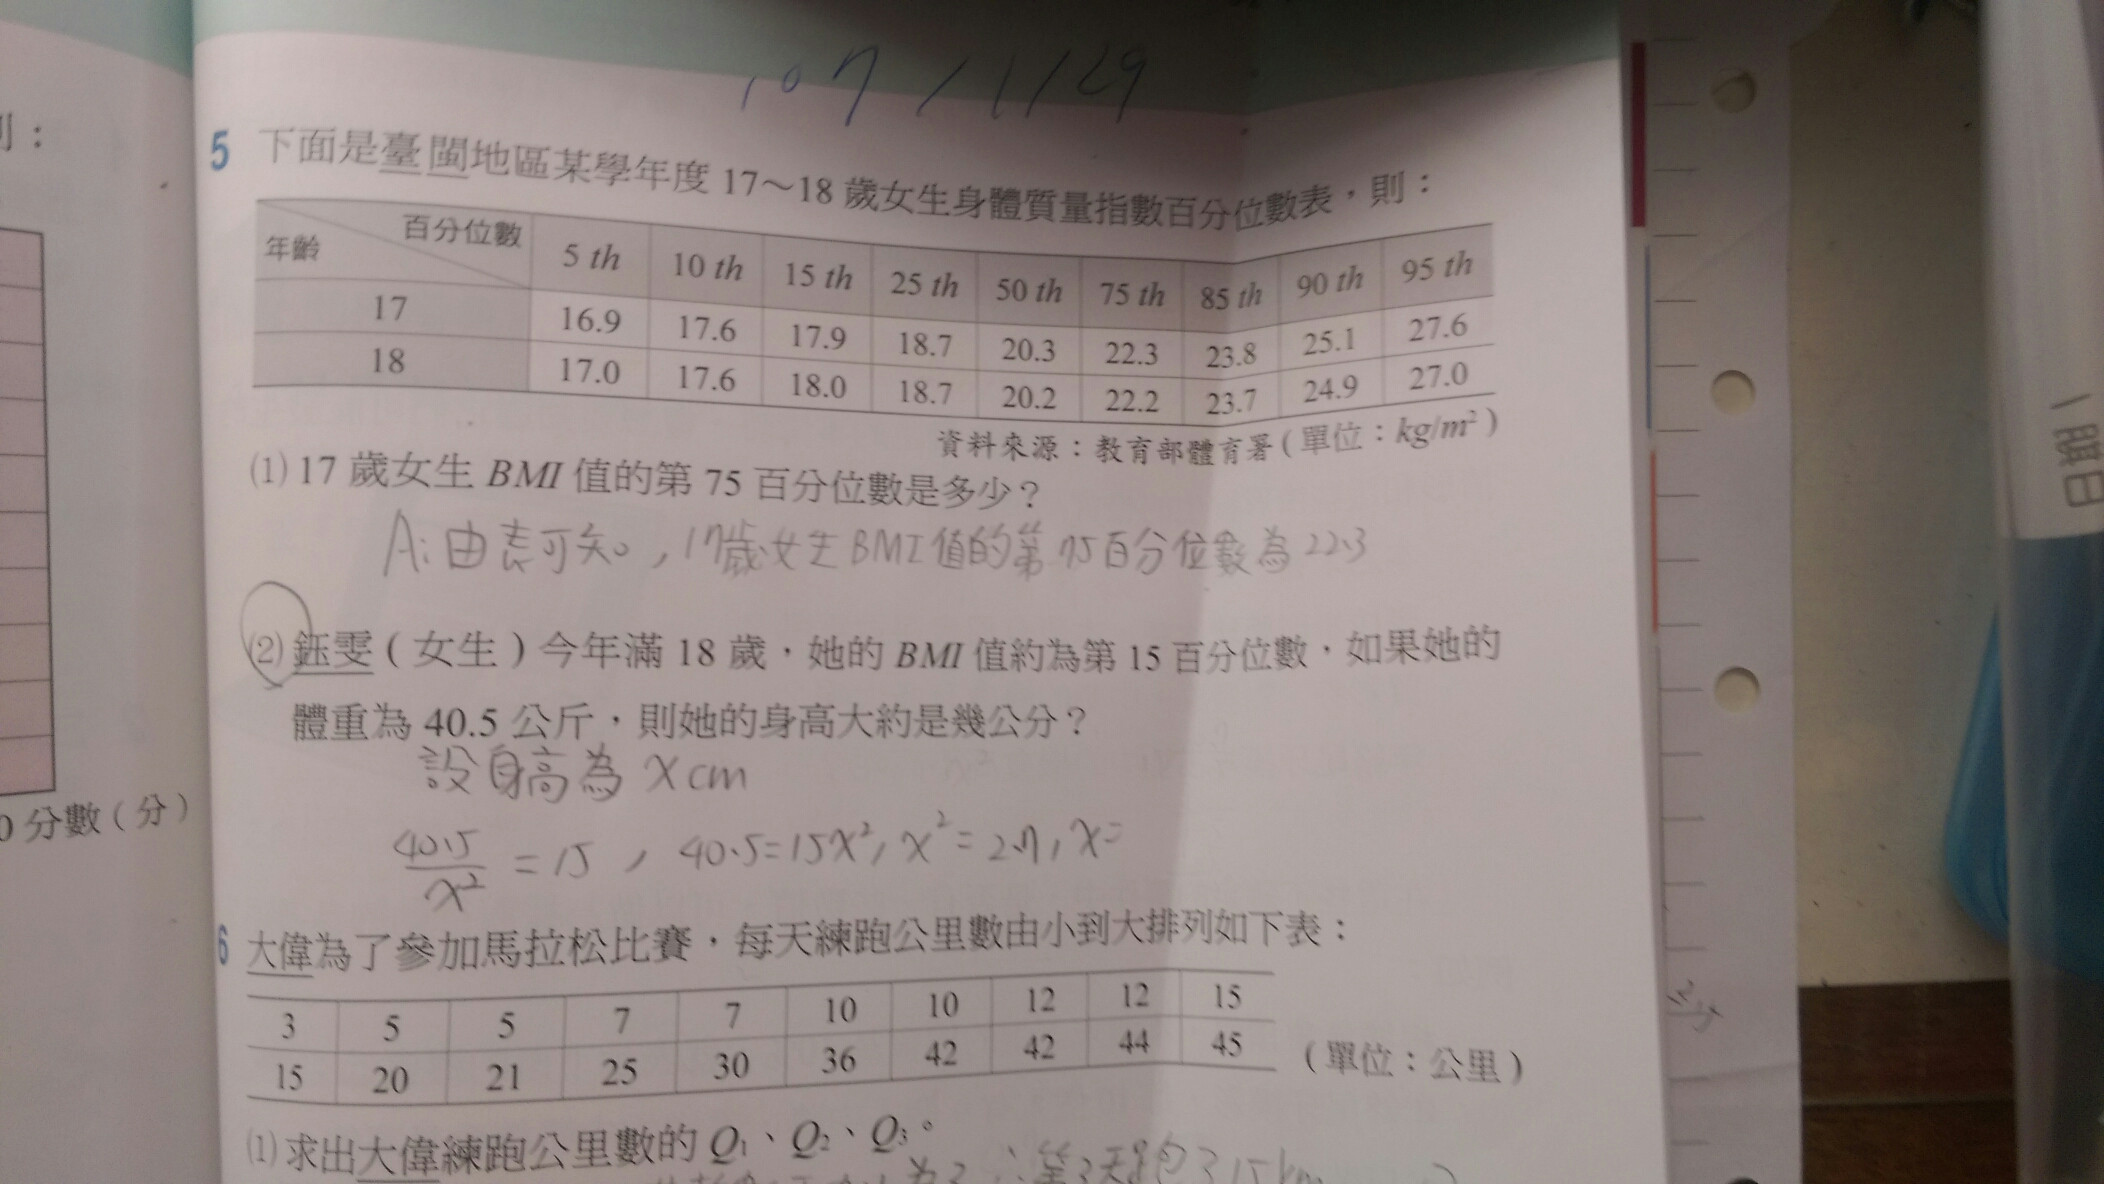 107/1/29
5 下面是臺閩地區某學年度 17～18 歲女生身體質量指數百分位數表，則：
年齡 百分位數 5 th 10 th 15 th 25 th 50 th 75 th 85 th 90 th 95 th
17 16.9 17.6 17.9 18.7 20.3 22.3 23.8 25.1 27.6
18 17.0 17.6 18.0 18.7 20.2 22.2 23.7 24.9 27.0
資料來源：教育部體育署（單位：kg/m²）
(1) 17 歲女生 BMI 值的第 75 百分位數是多少？
A：由表可知，17歲女生BMI值的第75百分位數為22.3
(2) 鈺雯（女生）今年滿 18 歲，她的 BMI 值約為第 15 百分位數，如果她的
體重為 40.5 公斤，則她的身高大約是幾公分？
設身高為 x cm
40.5/x² = 15, 40.5=15x², x²=2.7, x=
0 分數（分）
6 大偉為了參加馬拉松比賽，每天練跑公里數由小到大排列如下表：
3 5 5 7 7 10 10 12 12 15
15 20 21 25 30 36 42 42 44 45
（單位：公里）
(1) 求出大偉練跑公里數的 Q₁、Q₂、Q₃。